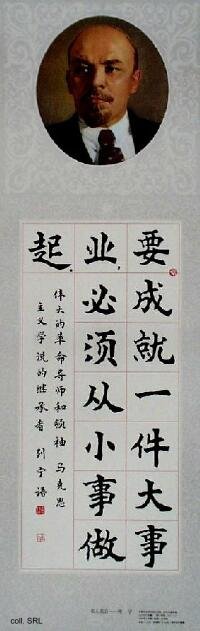 要成就一件大事
业,必须从小事做
起。
伟大的革命导师和领袖 马克思
主义学说的继承者 列宁语
coll. SRL